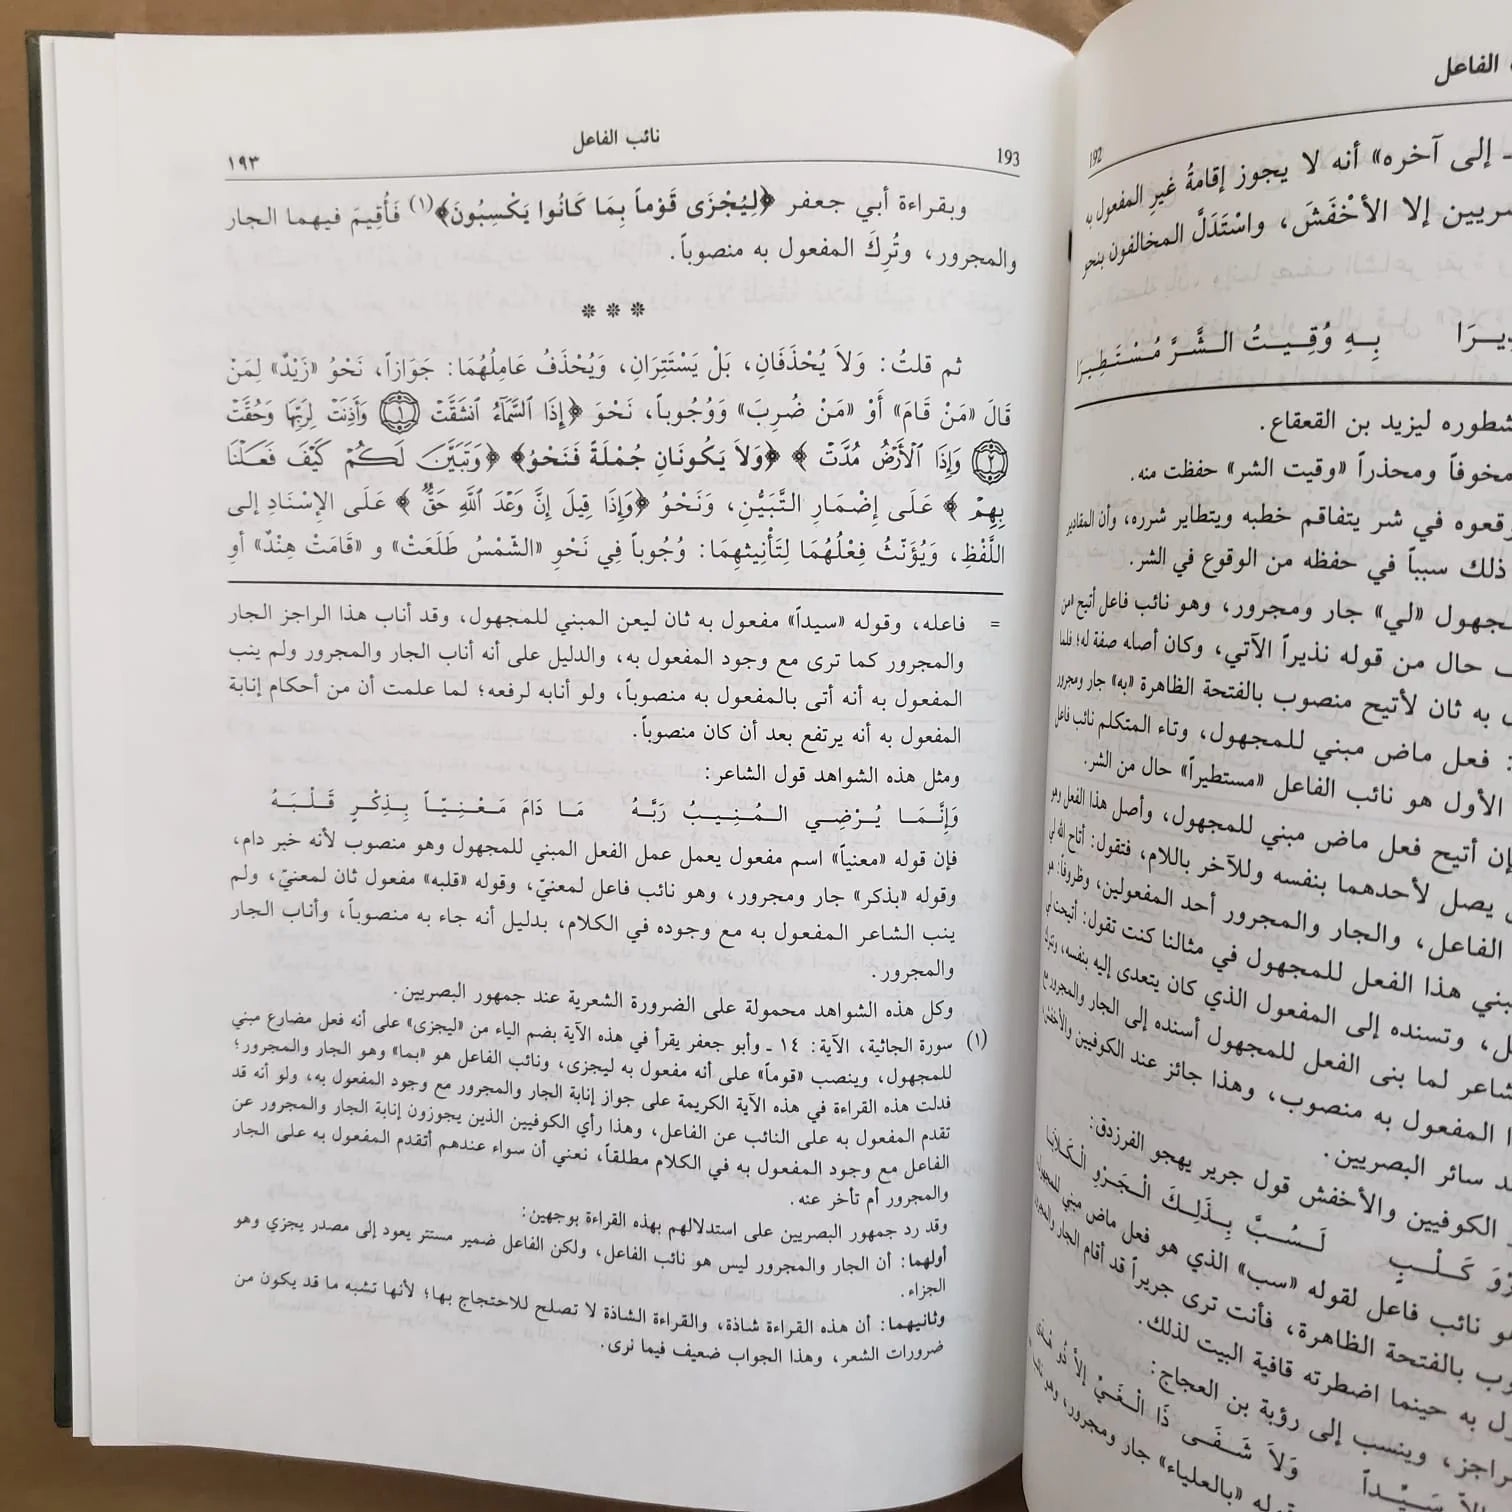 الفاعل
192
- إلى آخره» أنه لا يجوز إقامةُ غيرِ المفعول به
إلا الأخْفَشَ، واسْتَدَلَّ المخالفون بنحو
بِهِ وُقِيتُ الشَّرَّ مُسْتَطِيرَا
ليزيد بن القعقاع.
مخوفاً ومحذراً «وقيت الشر» حفظت منه.
في شر يتفاقم خطبه ويتطاير شرره، وأن المقادير
ذلك سبباً في حفظه من الوقوع في الشر.
«لي» جار ومجرور، وهو نائب فاعل أتيح «من
حال من قوله نذيراً الآتي، وكان أصله صفة له؛ فلما
به ثان لأتيح منصوب بالفتحة الظاهرة «به» جار ومجرور
: فعل ماض مبني للمجهول، وتاء المتكلم نائب فاعل
الأول هو نائب الفاعل «مستطيراً» حال من الشر.
أتيح فعل ماض مبني للمجهول، وأصل هذا الفعل وهو
يصل لأحدهما بنفسه وللآخر باللام، فتقول: أتاح الله لي
الفاعل، والجار والمجرور أحد المفعولين، وظروفاً: هو
هذا الفعل للمجهول في مثالنا كنت تقول: أتيحت لي
وتسنده إلى المفعول الذي كان يتعدى إليه بنفسه، وتترك
لما بنى الفعل للمجهول أسنده إلى الجار والمجرور مع
المفعول به منصوب، وهذا جائز عند الكوفيين والأخفش
سائر البصريين.
الكوفيين والأخفش قول جرير يهجو الفرزدق:
كَلْبٍ لَسُبَّ بِذَلِكَ الْجَرْوِ الْكَلَابَا
نائب فاعل لقوله «سب» الذي هو فعل ماض مبني للمجهول
بالفتحة الظاهرة، فأنت ترى جريراً قد أقام الجار والمجرور
به حينما اضطرته قافية البيت لذلك.
وينسب إلى رؤبة بن العجاج:
وَلاَ شَفَى ذَا الْغَيِّ إلاَّ ذُو هُدَى
«بالعلياء» جار ومجرور، وهو نائب
193 نائب الفاعل ١٩٣
وبقراءة أبي جعفر ﴿لِيُجْزَى قَوْماً بِمَا كَانُوا يَكْسِبُونَ﴾(١) فَأُقِيمَ فيهما الجار
والمجرور، وتُرِكَ المفعول به منصوباً.
* * *
ثم قلتُ: وَلاَ يُحْذَفَانِ، بَلْ يَسْتَتِرَانِ، وَيُحْذَفُ عَامِلُهُمَا: جَوَازاً، نَحْوُ «زَيْدٌ» لِمَنْ
قَالَ «مَنْ قَامَ» أَوْ «مَنْ ضُرِبَ» وَوُجُوباً، نَحْوَ ﴿إِذَا السَّمَآءُ انشَقَّتْ ١ وَأَذِنَتْ لِرَبِّهَا وَحُقَّتْ
٢ وَإِذَا ٱلْأَرْضُ مُدَّتْ﴾ ﴿وَلاَ يَكُونَانِ جُمْلَةً فَنَحْوُ﴾ ﴿وَتَبَيَّنَ لَكُمْ كَيْفَ فَعَلْنَا
بِهِمْ﴾ عَلَى إضْمَارِ التَّبَيُّنِ، وَنَحْوُ ﴿وَإِذَا قِيلَ إِنَّ وَعْدَ ٱللَّهِ حَقٌّ﴾ عَلَى الإسْنَادِ إلى
اللَّفْظِ، وَيُؤَنَّثُ فِعْلُهُمَا لِتَأْنِيثِهِمَا: وُجُوباً فِي نَحْوِ «الشَّمْسُ طَلَعَتْ» و «قَامَتْ هِنْدٌ» أو
= فاعله، وقوله «سيداً» مفعول به ثان ليعن المبني للمجهول، وقد أناب هذا الراجز الجار
والمجرور كما ترى مع وجود المفعول به، والدليل على أنه أناب الجار والمجرور ولم ينب
المفعول به أنه أتى بالمفعول به منصوباً، ولو أنابه لرفعه؛ لما علمت أن من أحكام إنابة
المفعول به أنه يرتفع بعد أن كان منصوباً.
ومثل هذه الشواهد قول الشاعر:
وَإِنَّمَا يُرْضِي المُنِيبُ رَبَّهُ مَا دَامَ مَعْنِيّاً بِذِكْرٍ قَلْبَهُ
فإن قوله «معنياً» اسم مفعول يعمل عمل الفعل المبني للمجهول وهو منصوب لأنه خبر دام،
وقوله «بذكر» جار ومجرور، وهو نائب فاعل لمعنيّ، وقوله «قلبه» مفعول ثان لمعنيّ، ولم
ينب الشاعر المفعول به مع وجوده في الكلام، بدليل أنه جاء به منصوباً، وأناب الجار
والمجرور.
وكل هذه الشواهد محمولة على الضرورة الشعرية عند جمهور البصريين.
(١) سورة الجاثية، الآية: ١٤ - وأبو جعفر يقرأ في هذه الآية بضم الياء من «ليجزى» على أنه فعل مضارع مبني
للمجهول، وينصب «قوماً» على أنه مفعول به ليجزى، ونائب الفاعل هو «بما» وهو الجار والمجرور؛
فدلت هذه القراءة في هذه الآية الكريمة على جواز إنابة الجار والمجرور مع وجود المفعول به، ولو أنه قد
تقدم المفعول به على النائب عن الفاعل، وهذا رأي الكوفيين الذين يجوزون إنابة الجار والمجرور عن
الفاعل مع وجود المفعول به في الكلام مطلقاً، نعني أن سواء عندهم أتقدم المفعول به على الجار
والمجرور أم تأخر عنه.
وقد رد جمهور البصريين على استدلالهم بهذه القراءة بوجهين:
أولهما: أن الجار والمجرور ليس هو نائب الفاعل، ولكن الفاعل ضمير مستتر يعود إلى مصدر يجزي وهو
الجزاء.
وثانيهما: أن هذه القراءة شاذة، والقراءة الشاذة لا تصلح للاحتجاج بها؛ لأنها تشبه ما قد يكون من
ضرورات الشعر، وهذا الجواب ضعيف فيما نرى.